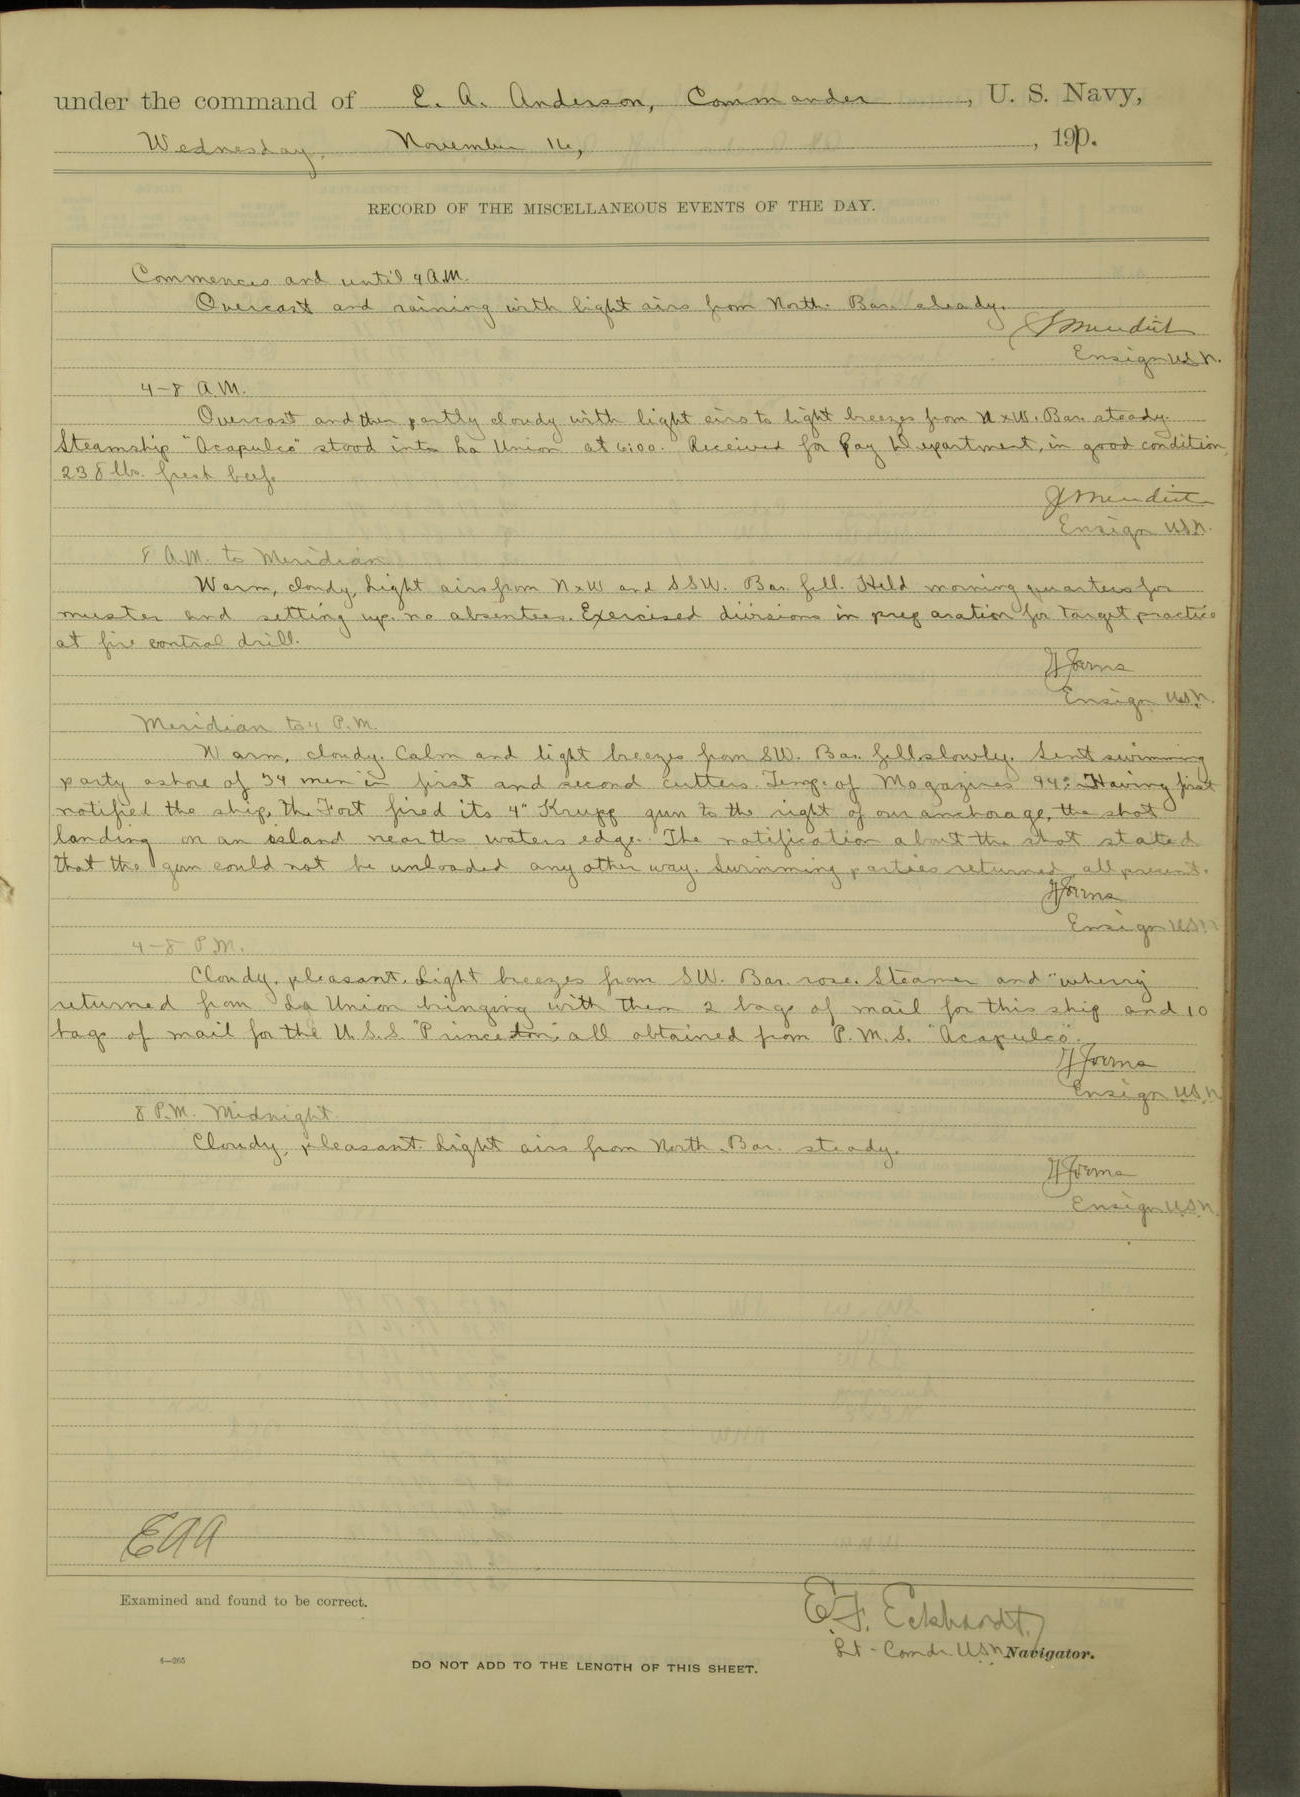 under the command of E. A. Anderson, Commander, U. S. Navy,
Wednesday, November 16, , 1910.
RECORD OF THE MISCELLANEOUS EVENTS OF THE DAY.
Commences and until 4 A.M.
Overcast and raining with light airs from North. Bar. steady.
Ensign U.S.N.
4-8 A.M.
Overcast and then partly cloudy with light airs to light breezes from NxW. Bar. steady.
Steamship "Acapulco" stood into La Union at 6:00. Received for Pay Department, in good condition,
238 lbs. fresh beef.
Ensign U.S.N.
8 A.M. to Meridian
Warm, cloudy, Light airs from NxW and SSW. Bar. fell. Held morning quarters for
muster and setting up. no absentees. Exercised divisions in preparation for target practice
at fire control drill.
Ensign U.S.N.
Meridian to 4 P.M.
Warm, cloudy. Calm and light breezes from SW. Bar. fell slowly. Sent swimming
party ashore of 54 men in first and second cutters. Temp. of Magazines 94°. Having first
notified the ship, the Fort fired its 4" Krupp gun to the right of our anchorage, the shot
landing on an island near the waters edge. The notification about the shot stated
that the gun could not be unloaded any other way. Swimming parties returned, all present.
Ensign U.S.N.
4-8 P.M.
Cloudy, pleasant. Light breezes from SW. Bar. rose. Steamer and wherry
returned from La Union bringing with them 2 bags of mail for this ship and 10
bags of mail for the U.S.S. "Princeton", all obtained from P.M.S. "Acapulco".
Ensign U.S.N.
8 P.M. Midnight
Cloudy, pleasant. Light airs from North. Bar. steady.
Ensign U.S.N.
EAA
Examined and found to be correct.
E. F. Eckhardt,
Lt-Comdr. U.S.N. Navigator.
4—265
DO NOT ADD TO THE LENGTH OF THIS SHEET.